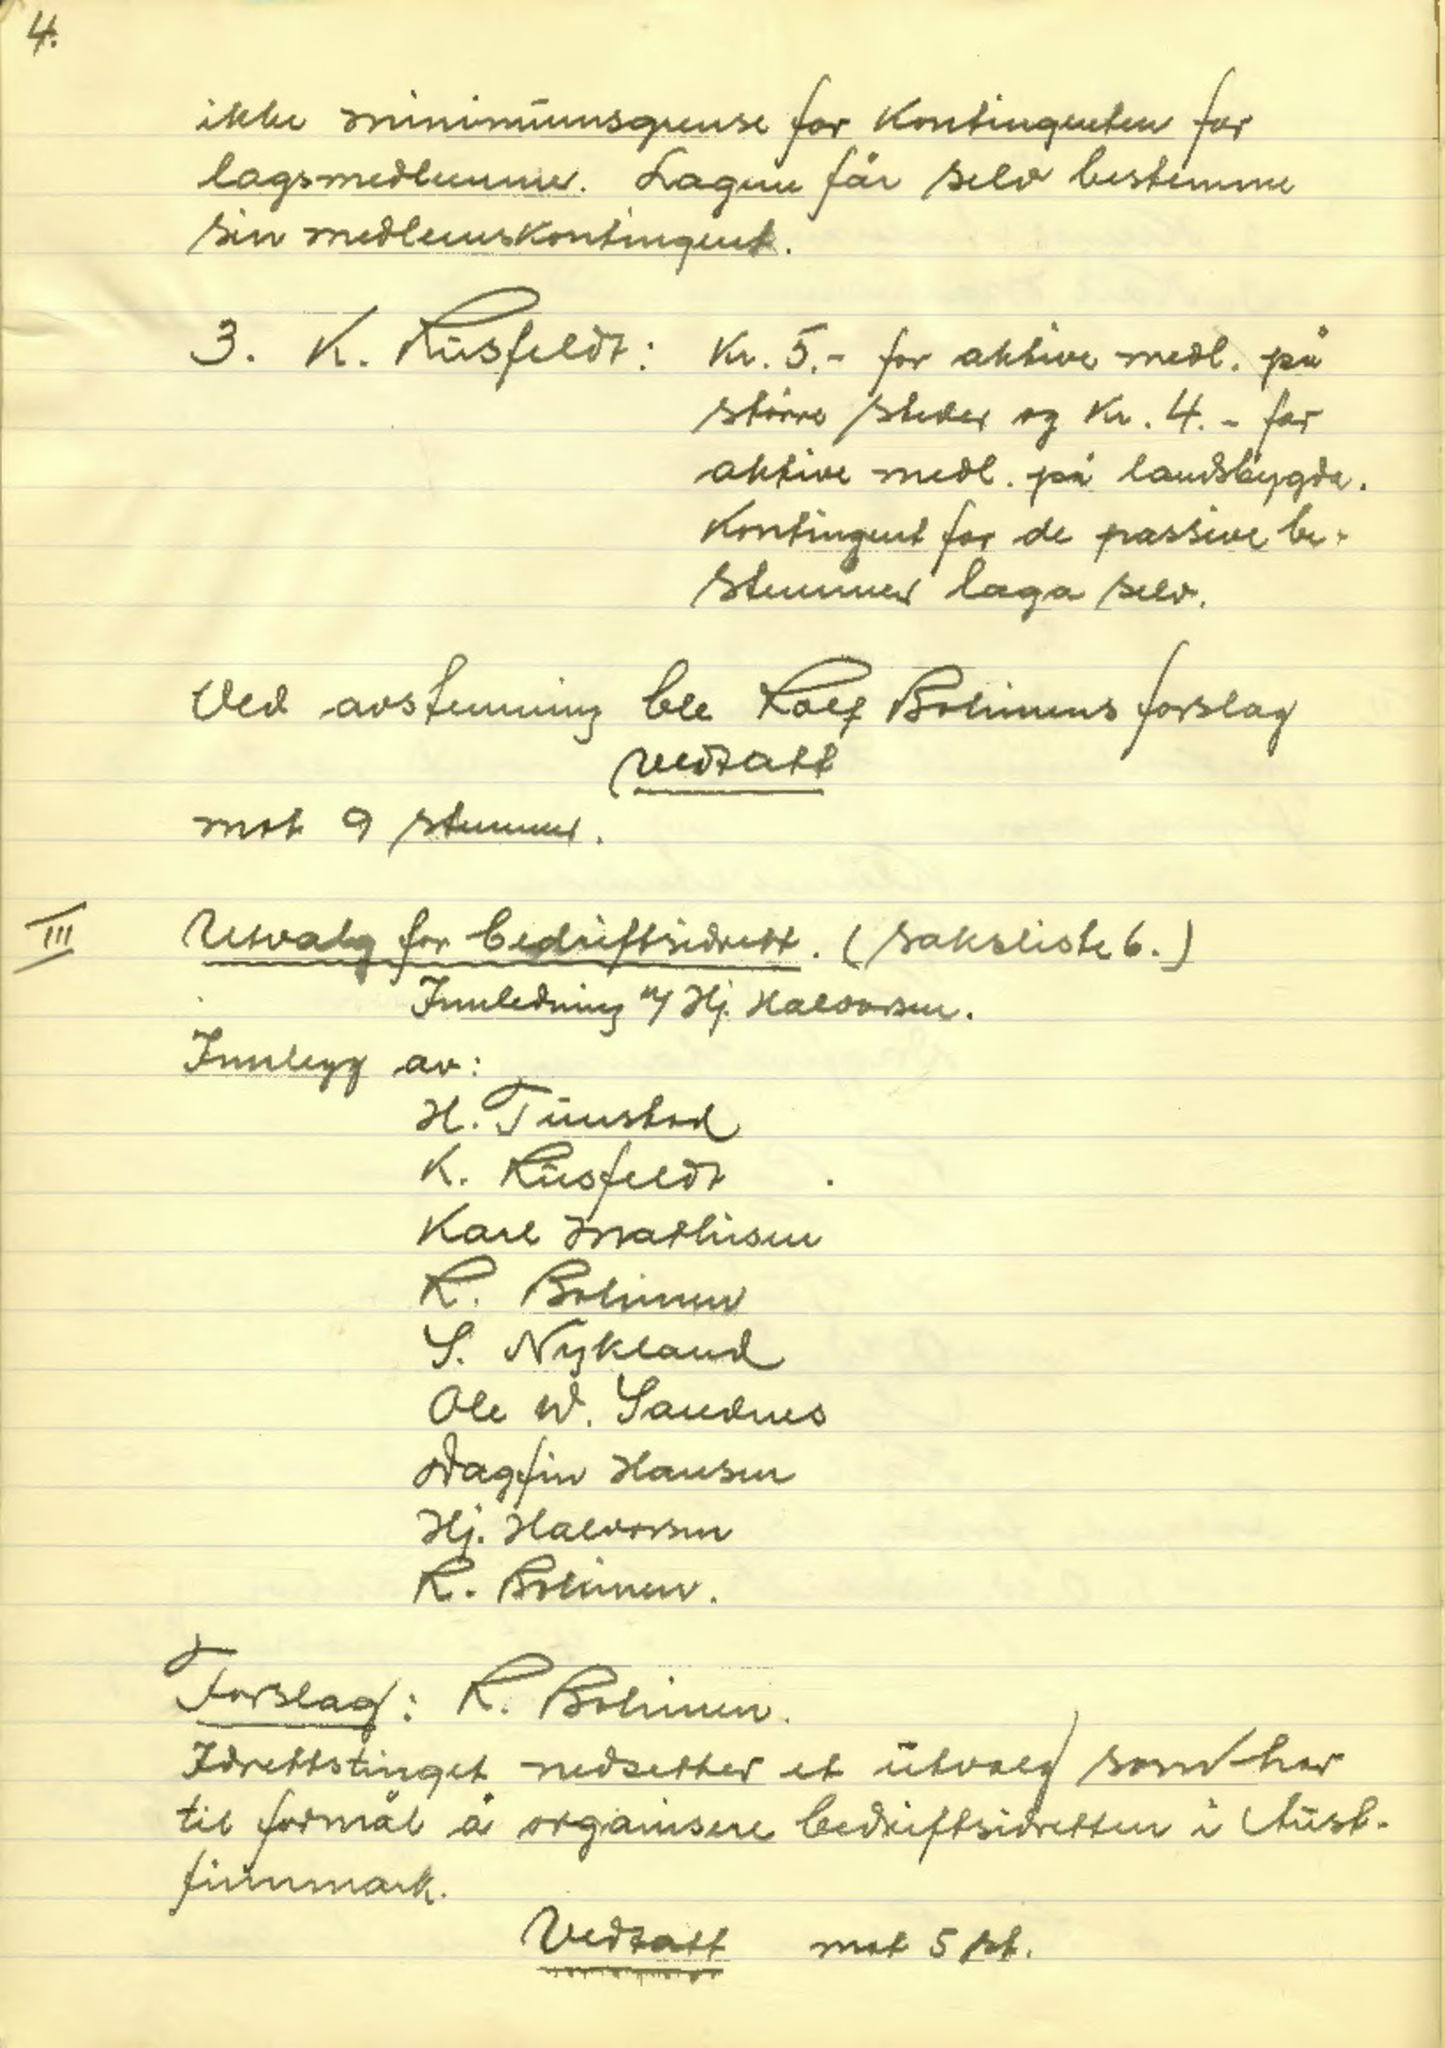 4.
ikke minimumsgrense for kontingenten for
lagsmedlemmer. Lagene får selv bestemme
sin medlemskontingent.
3. K. Rusfeldt: Kr. 5.- for aktive medl. på
större steder og Kr. 4.- for
aktive medl. på landsbygda.
Kontingent for de passive be-
stemmer laga selv.
Ved avstemning ble Rolf Bohinens forslag
vedtatt
mot 9 stemmer.
III Utvalg for bedriftsidrett. (saksliste 6.)
Innledning v/ Hj. Halvorsen.
Innlegg av:
H. Tunstad
K. Rusfeldt
Karl Mathisen
R. Bohinen
S. Nykland
Ole W. Sandnes
Dagfin Hansen
Hj. Halvorsen
R. Bohinen.
Forslag: R. Bohinen.
Idrettstinget nedsetter et utvalg som har
til formål å organisere bedriftsidretten i Aust-
finnmark.
Vedtatt mot 5 st.